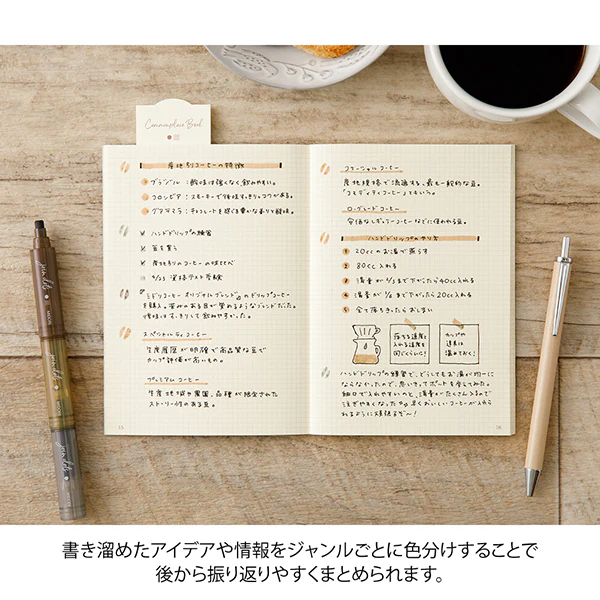 Commonplace Book
産地別コーヒーの特徴
ブラジル：酸味は強くなく飲みやすい。
コロンビア：スモーキーで後味すっきりチョコがある。
グアテマラ：チョコレートを感じる豊かな香りと酸味。
ハンドドリップの練習
豆を買う
産地別のコーヒーの味比べ
4/23 資格テスト受験
『ミドリコーヒー オリジナルブレンド』のドリップコーヒー
を購入。苦みのある目が覚めるようなブレンドだった。
後味はすっきりして飲みやすかった。
スペシャルティコーヒー
生産履歴が明確で高品質な豆で
カップ評価が高いもの。
プレミアムコーヒー
生産地域や農園、品種が限定された
ストーリー性のある豆。
15
コマーシャルコーヒー
産地規格で流通する、最も一般的な豆。
「コモディティコーヒー」ともいう。
ローグレードコーヒー
安価なレギュラーコーヒーなどに使われる豆。
ハンドドリップのやり方
1 20ccのお湯で蒸らす
2 80cc入れる
3 湯量が2/3まで下がったら40cc入れる
4 湯量が1/2まで下がったら20cc入れる
5 全て落ちきったらおしまい
落ちる速度と
入れる速度を
同じぐらいに!
カップの
道具は
温めておく!
ハンドドリップの練習で、どうしてもお湯が均一に
ならなかったので、思いきってポットを今してみた。
細口で入れやすいのと、湯量がたくさん入るので
注ぎやすくなった
早くおいしいコーヒーが入れら
れるように頑張るぞ〜!
16
書き溜めたアイデアや情報をジャンルごとに色分けすることで
後から振り返りやすくまとめられます。